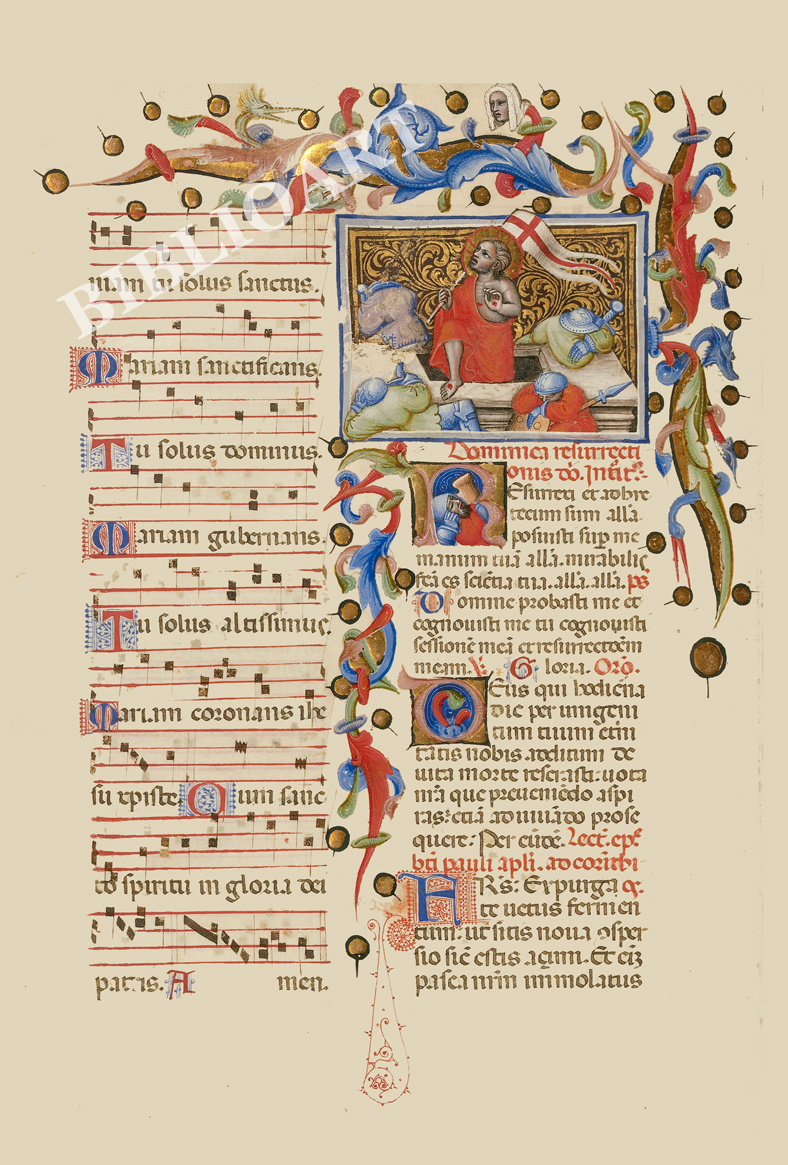 BIBLIOART
niam tu solus sanctus.
Mariam sanctificans.
Tu solus dominus.
Mariam gubernans.
Tu solus altissimus.
Mariam coronans ihe
su xpiste. Cum sanc
to spiritu in gloria dei
patris. Amen.
Dominica resurrecti
onis dñi. Introit.
Resurrexi et adhuc
tecum sum all'a.
posuisti sup me
manum tuã all'a. mirabilis
sc̃ta ẽs sciẽtia tua. all'a. all'a. ps
Domine probasti me et
cognovisti me tu cognovisti
sessionẽ meã et resurrectõem
meam. V. Gloria. Oro.
Deus qui hodierna
die per unigeni
tum tuum eter
nitatis nobis aditum de
victa morte reserasti: vota
nr̃a que preveniẽdo aspi
ras: etiã adiuvãdo prose
quere. Per eũdẽ. Lect. epl'e
bti pauli apli. ad corinthi
FRS: Expurga
te vetus fermen
tum: ut sitis nova ɔsper
sio sic̃ estis açimi. Et eĩz
pasca nr̃m immolatus